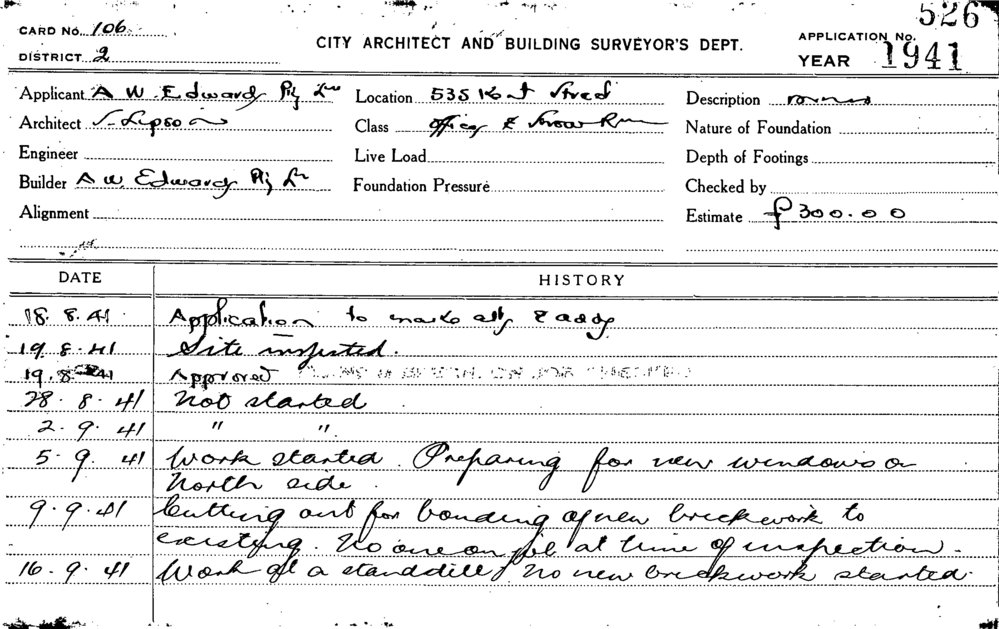 526
CARD NO. 106
CITY ARCHITECT AND BUILDING SURVEYOR'S DEPT.
APPLICATION No.
DISTRICT 2
YEAR 1941
Applicant A W. Edwards Pty Ltd
Location 535 Kent Street
Description
Architect S. Lipson
Class Offices & Show Rm
Nature of Foundation
Engineer
Live Load
Depth of Footings
Builder A W. Edwards Pty Ltd
Foundation Pressure
Checked by
Alignment
Estimate £300.00
DATE HISTORY
18. 8. 41 Application to make alts & adds
19. 8. 41 Site inspected.
19. 8. 41 Approved
28. 8. 41 Not started
2. 9. 41 " "
5. 9. 41 Work started. Preparing for new windows on
North side.
9. 9. 41 Cutting out for bonding of new brickwork to
existing. No one on job at time of inspection.
16. 9. 41 Work at a standstill, No new brickwork started.